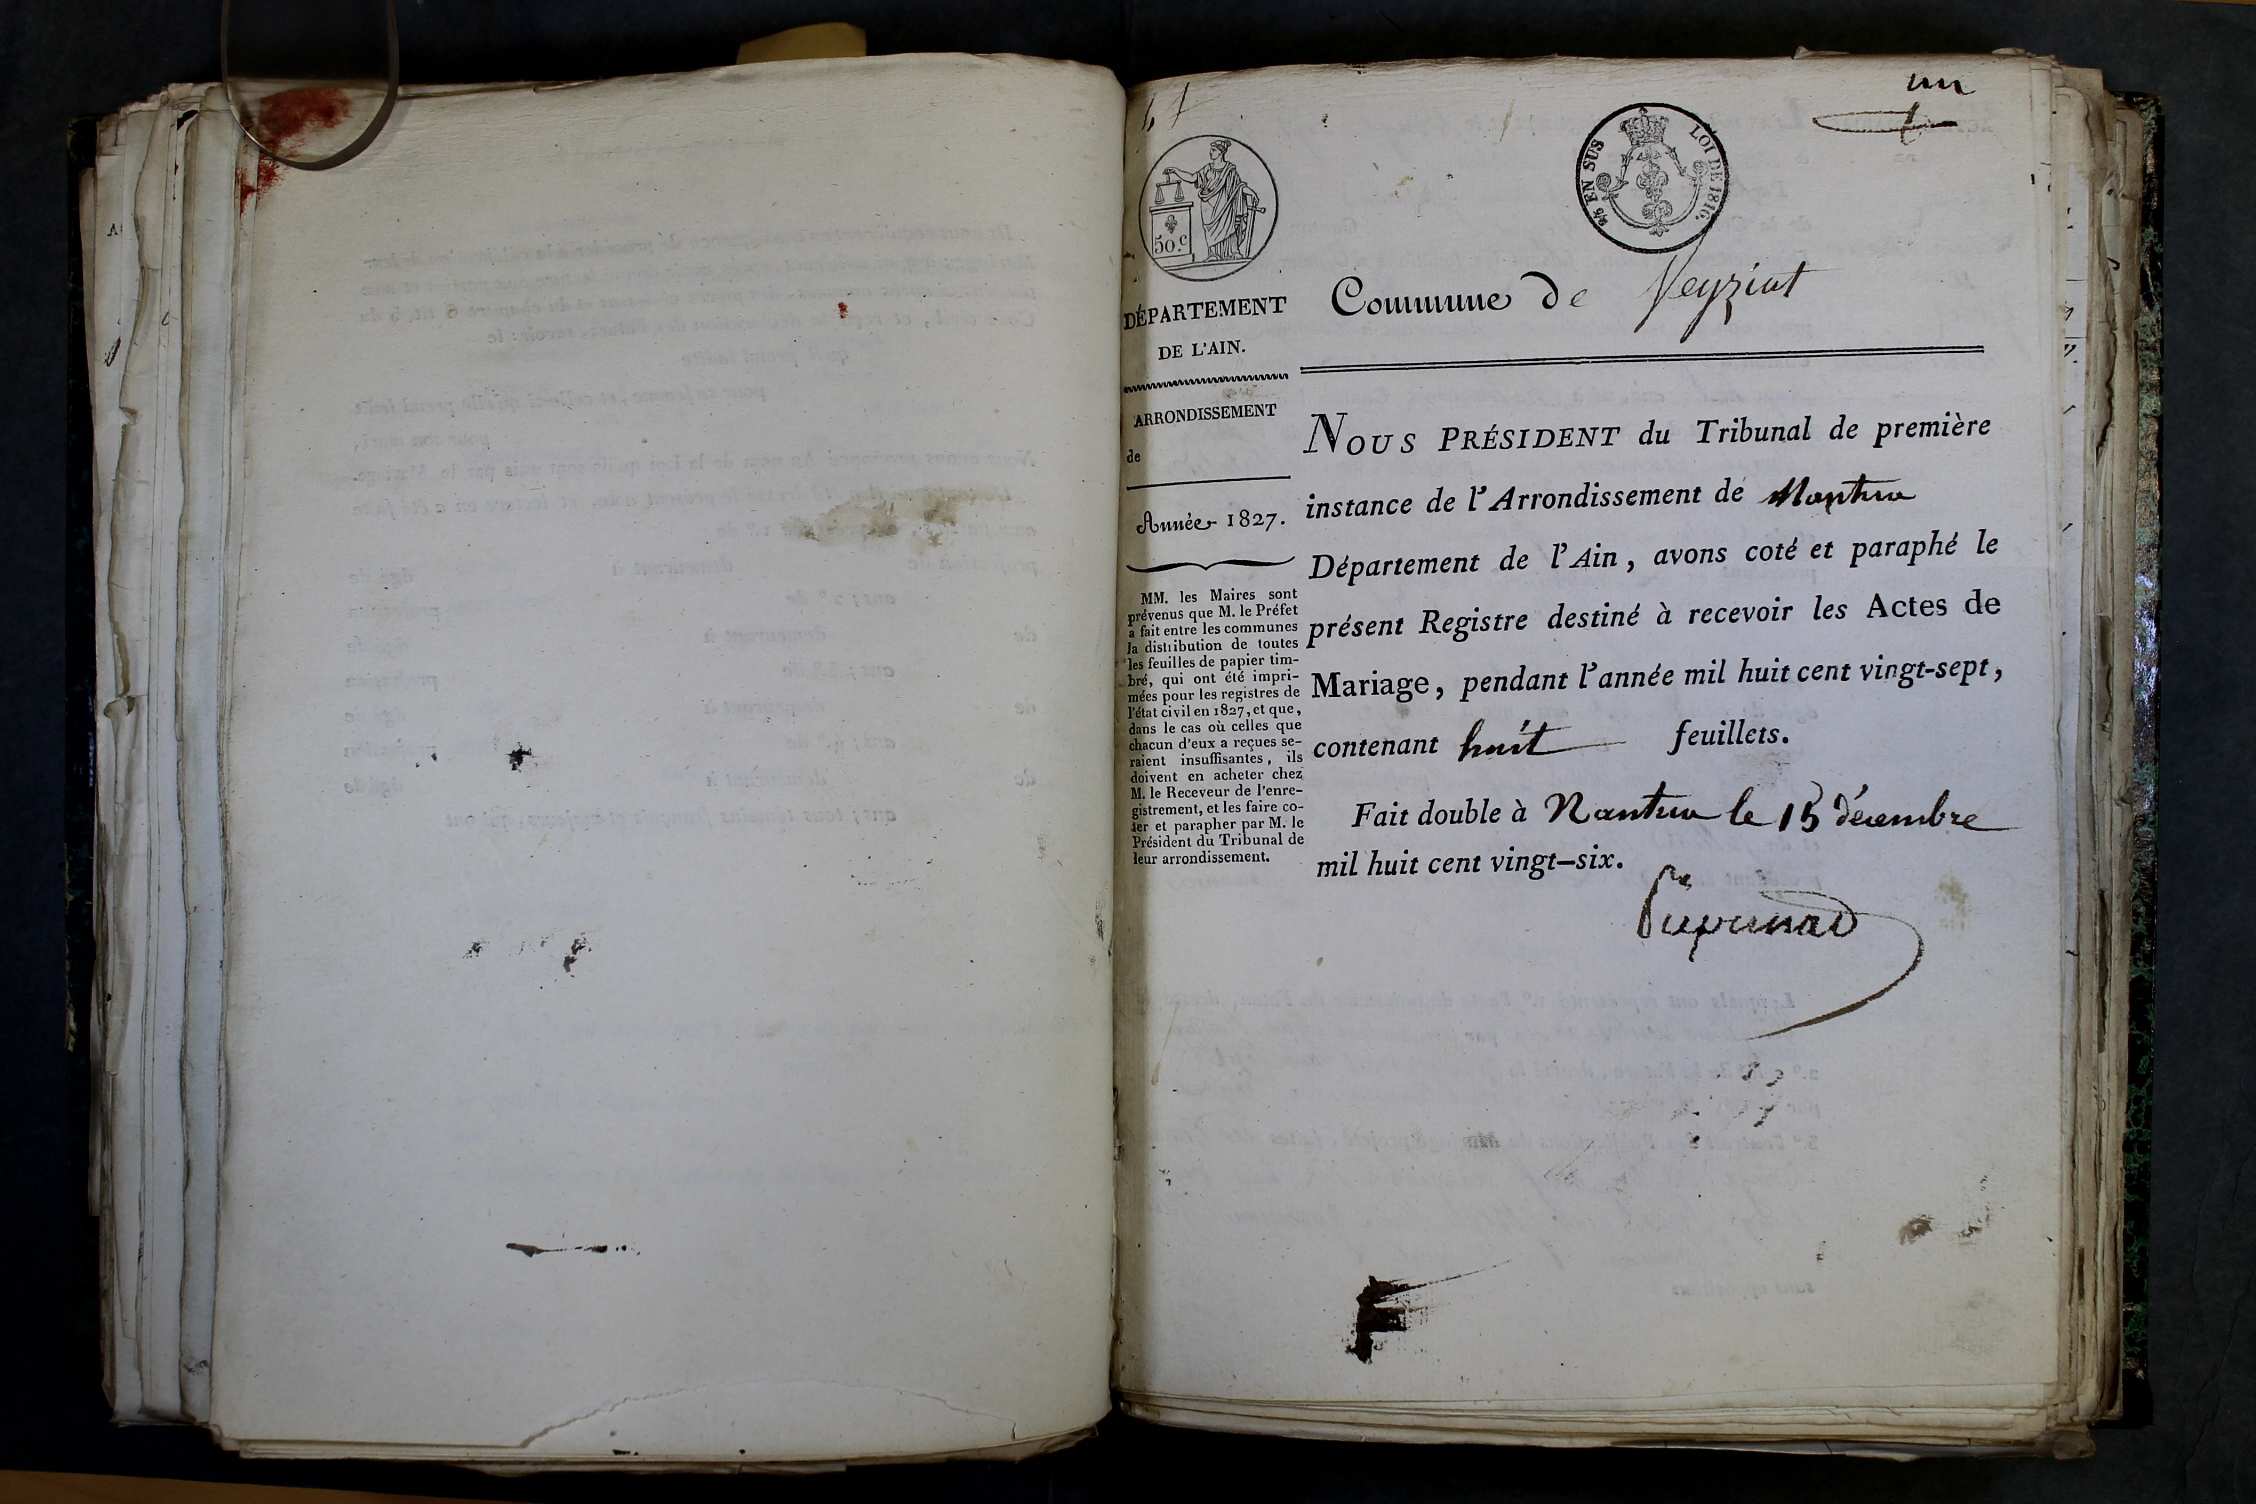 un
50.c
2/5 EN SUS LOI DE 1816.
DÉPARTEMENT
DE L'AIN.
ARRONDISSEMENT
de
Année 1827.
MM. les Maires sont
prévenus que M. le Préfet
a fait entre les communes
la distribution de toutes
les feuilles de papier tim-
bré, qui ont été impri-
mées pour les registres de
l'état civil en 1827, et que,
dans le cas où celles que
chacun d'eux a reçues se-
raient insuffisantes, ils
doivent en acheter chez
M. le Receveur de l'enre-
gistrement, et les faire co-
ter et parapher par M. le
Président du Tribunal de
leur arrondissement.
Commune de Veyziat
NOUS PRÉSIDENT du Tribunal de première
instance de l'Arrondissement de Nantua
Département de l'Ain, avons coté et paraphé le
présent Registre destiné à recevoir les Actes de
Mariage, pendant l'année mil huit cent vingt-sept,
contenant huit feuillets.
Fait double à Nantua le 15 décembre
mil huit cent vingt-six.